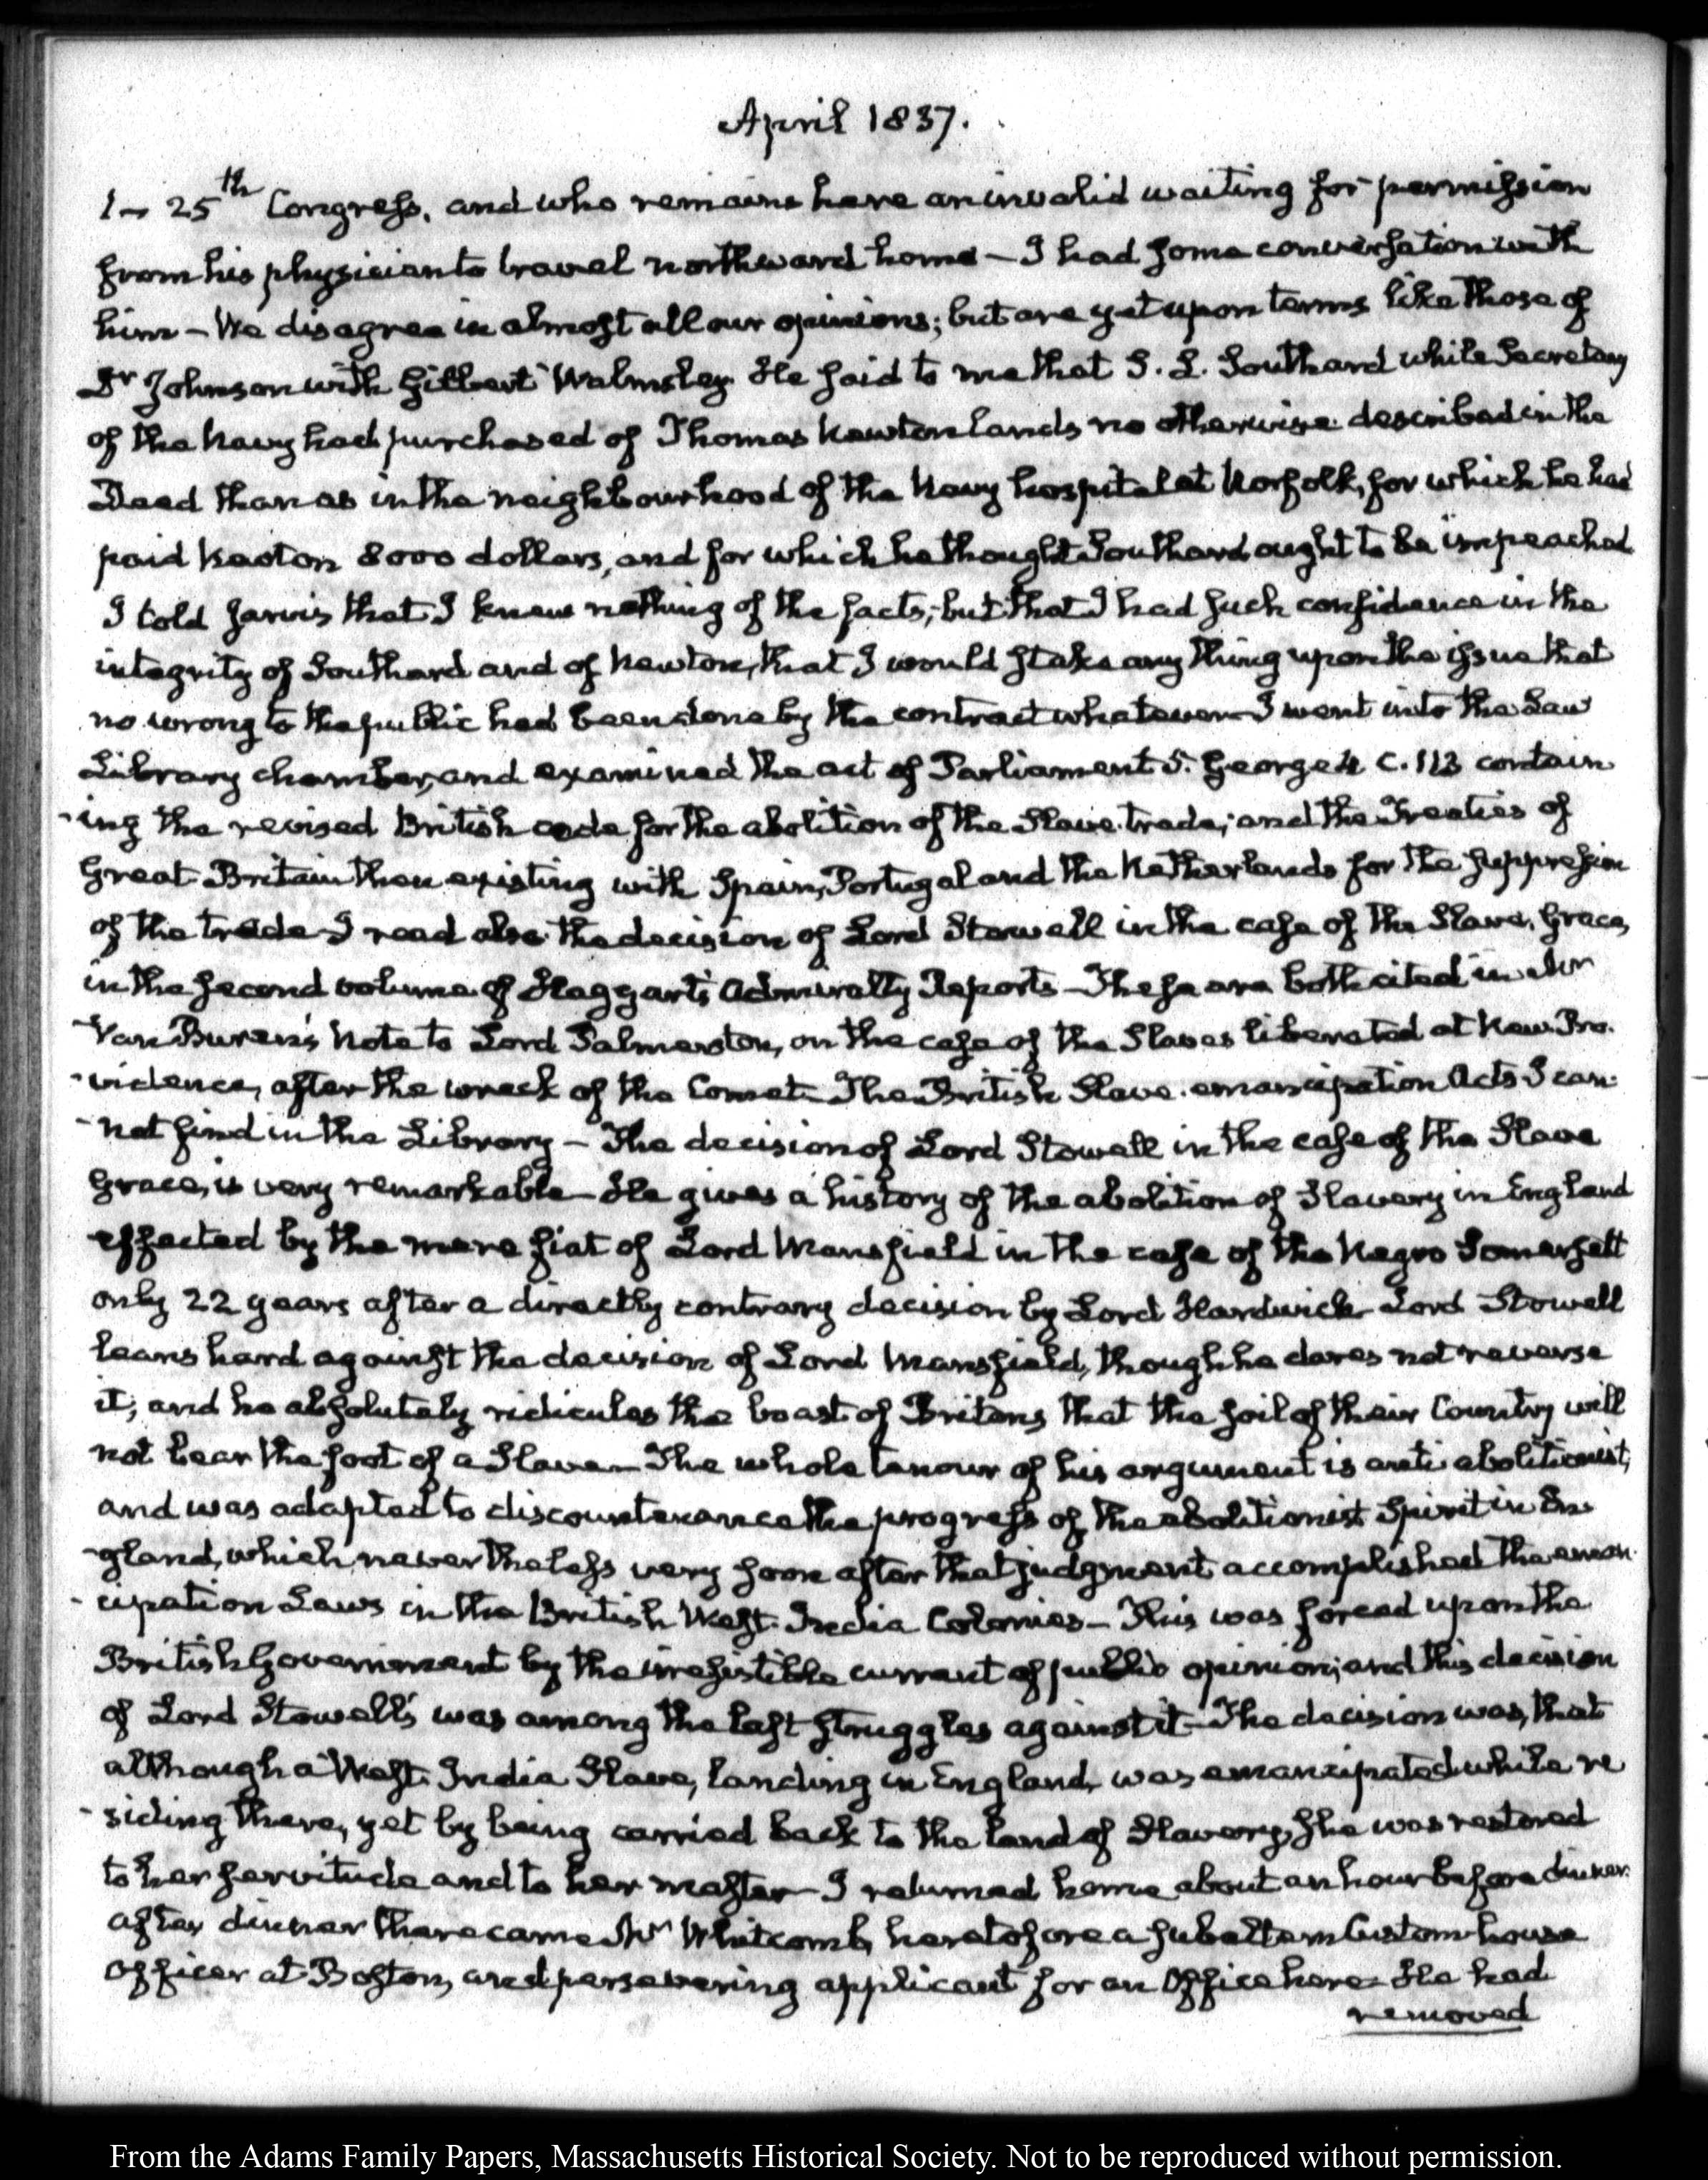 April 1837.
1 – 25th Congress, and who remains here an invalid waiting for permission
from his physician to travel northward home – I had some conversation with
him – We disagree in almost all our opinions; but are yet upon terms like those of
Dr Johnson with Gilbert Walmsley. He said to me that S. L. Southard while Secretary
of the Navy had purchased of Thomas Newton lands no otherwise described in the
Deed than as in the neighbourhood of the Navy hospital at Norfolk, for which he had
paid Newton 8000 dollars, and for which he thought Southard ought to be impeached
I told Jarvis that I knew nothing of the facts; but that I had such confidence in the
integrity of Southard and of Newton, that I would stake any thing upon the issue that
no wrong to the public had been done by the contract whatever – I went into the Law
Library chamber, and examined the act of Parliament 5. George 4 C. 113 contain
-ing the revised British code for the abolition of the Slave. trade; and the Treaties of
Great-Britain then existing with Spain, Portugal and the Netherlands for the suppression
of the trade – I read also the decision of Lord Stowell in the case of the Slave, Grace,
in the second volume of Haggart's Admiralty Reports – These are both cited in Mr
Van Buren's Note to Lord Palmerston, on the case of the Slaves liberated at New Pro-
-vidence, after the wreck of the Comet – The British Slave. emancipation Acts I can-
-not find in the Library – The decision of Lord Stowell in the case of the Slave
Grace, is very remarkable – He gives a history of the abolition of Slavery in England
effected by the mere fiat of Lord Mansfield in the case of the Negro Somersett
only 22 years after a directly contrary decision by Lord Hardwick – Lord Stowell
leans hard against the decision of Lord Mansfield, though he dares not reverse
it; and he absolutely ridicules the boast of Britons that the soil of their Country will
not bear the foot of a Slave – The whole tenour of his argument is anti abolitionist,
and was adapted to discountenance the progress of the abolitionist Spirit in En
-gland, which nevertheless very soon after that judgment accomplished the eman-
-cipation Laws in the British West-India Colonies – This was forced upon the
British Government by the irresistible current of public opinion; and this decision
of Lord Stowell's was among the last struggles against it – The decision was, that
although a West-India Slave, landing in England, was emancipated while re
-siding there, yet by being carried back to the land of Slavery, she was restored
to her servitude and to her master – I returned home about an hour before dinner.
after dinner there came Mr Whitcomb, heretofore a subaltern Custom-house
Officer at Boston, and persevering applicant for an Office here – He had
removed
From the Adams Family Papers, Massachusetts Historical Society. Not to be reproduced without permission.